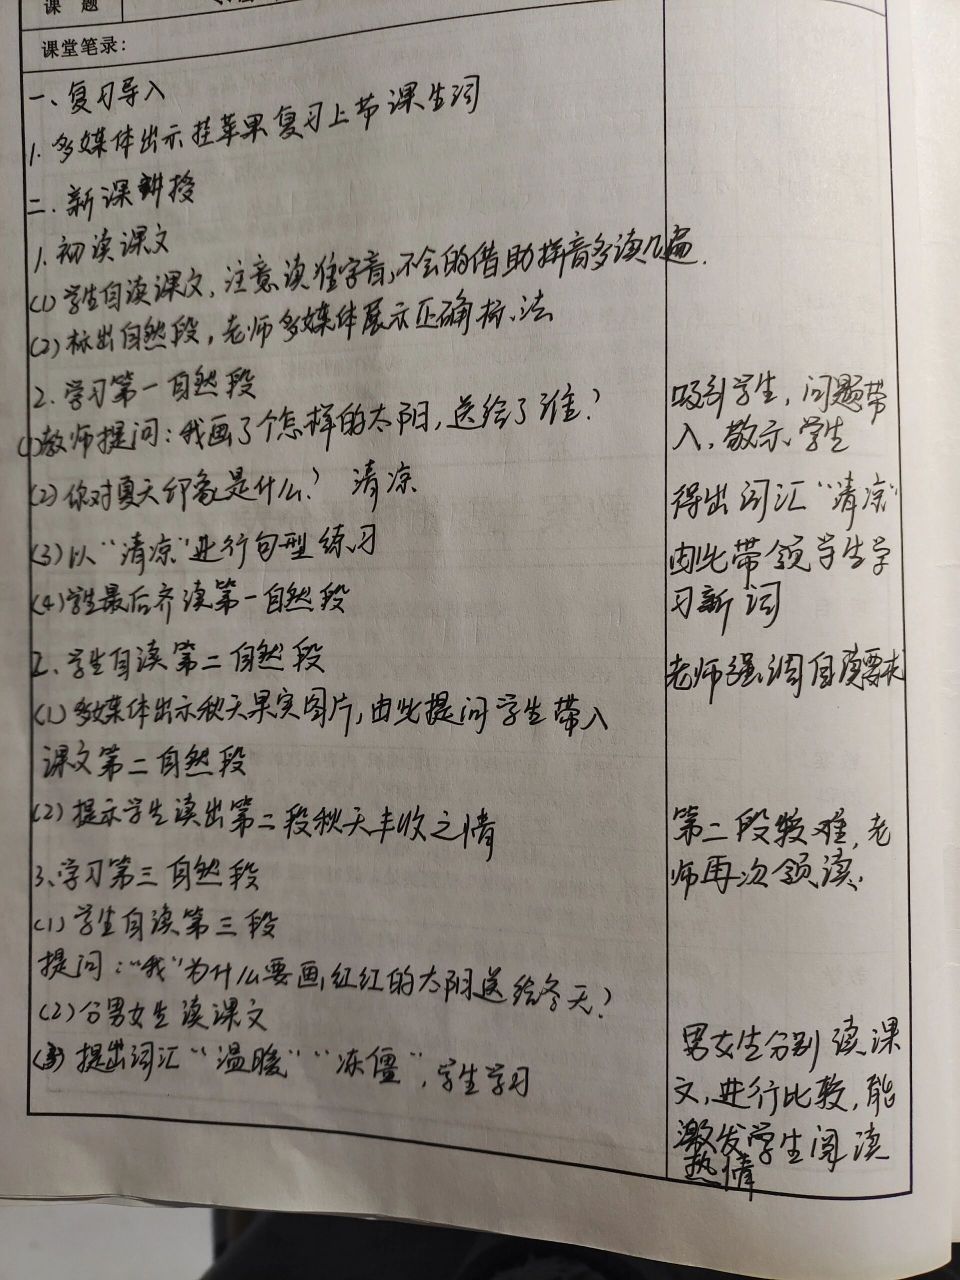 课 题
课堂笔录：
一、复习导入
1. 多媒体出示挂苹果复习上节课生词
二、新课讲授
1. 初读课文
(1) 学生自读课文，注意读准字音，不会的借助拼音多读几遍．
(2) 标出自然段，老师多媒体展示正确标法
2. 学习第一自然段
(1)教师提问：我画了个怎样的太阳，送给了谁？
(2) 你对夏天印象是什么？ 清凉
(3) 以“清凉”进行句型练习
(4)学生最后齐读第一自然段
2. 学生自读第二自然段
(1) 多媒体出示秋天果实图片，由此提问学生带入
课文第二自然段
(2) 提示学生读出第二段秋天丰收之情
3. 学习第三自然段
(1) 学生自读第三段
提问：“我”为什么要画红红的太阳送给冬天？
(2) 分男女生读课文
(3) 提出词汇“温暖”“冻僵”，学生学习
吸引学生，问题带
入，学生
得出词汇“清凉”
由此带领学生学
习新词
老师强调自读要求
第二段较难，老
师再次领读．
男女生分别读课
文，进行比较，能
激发学生阅读
热情